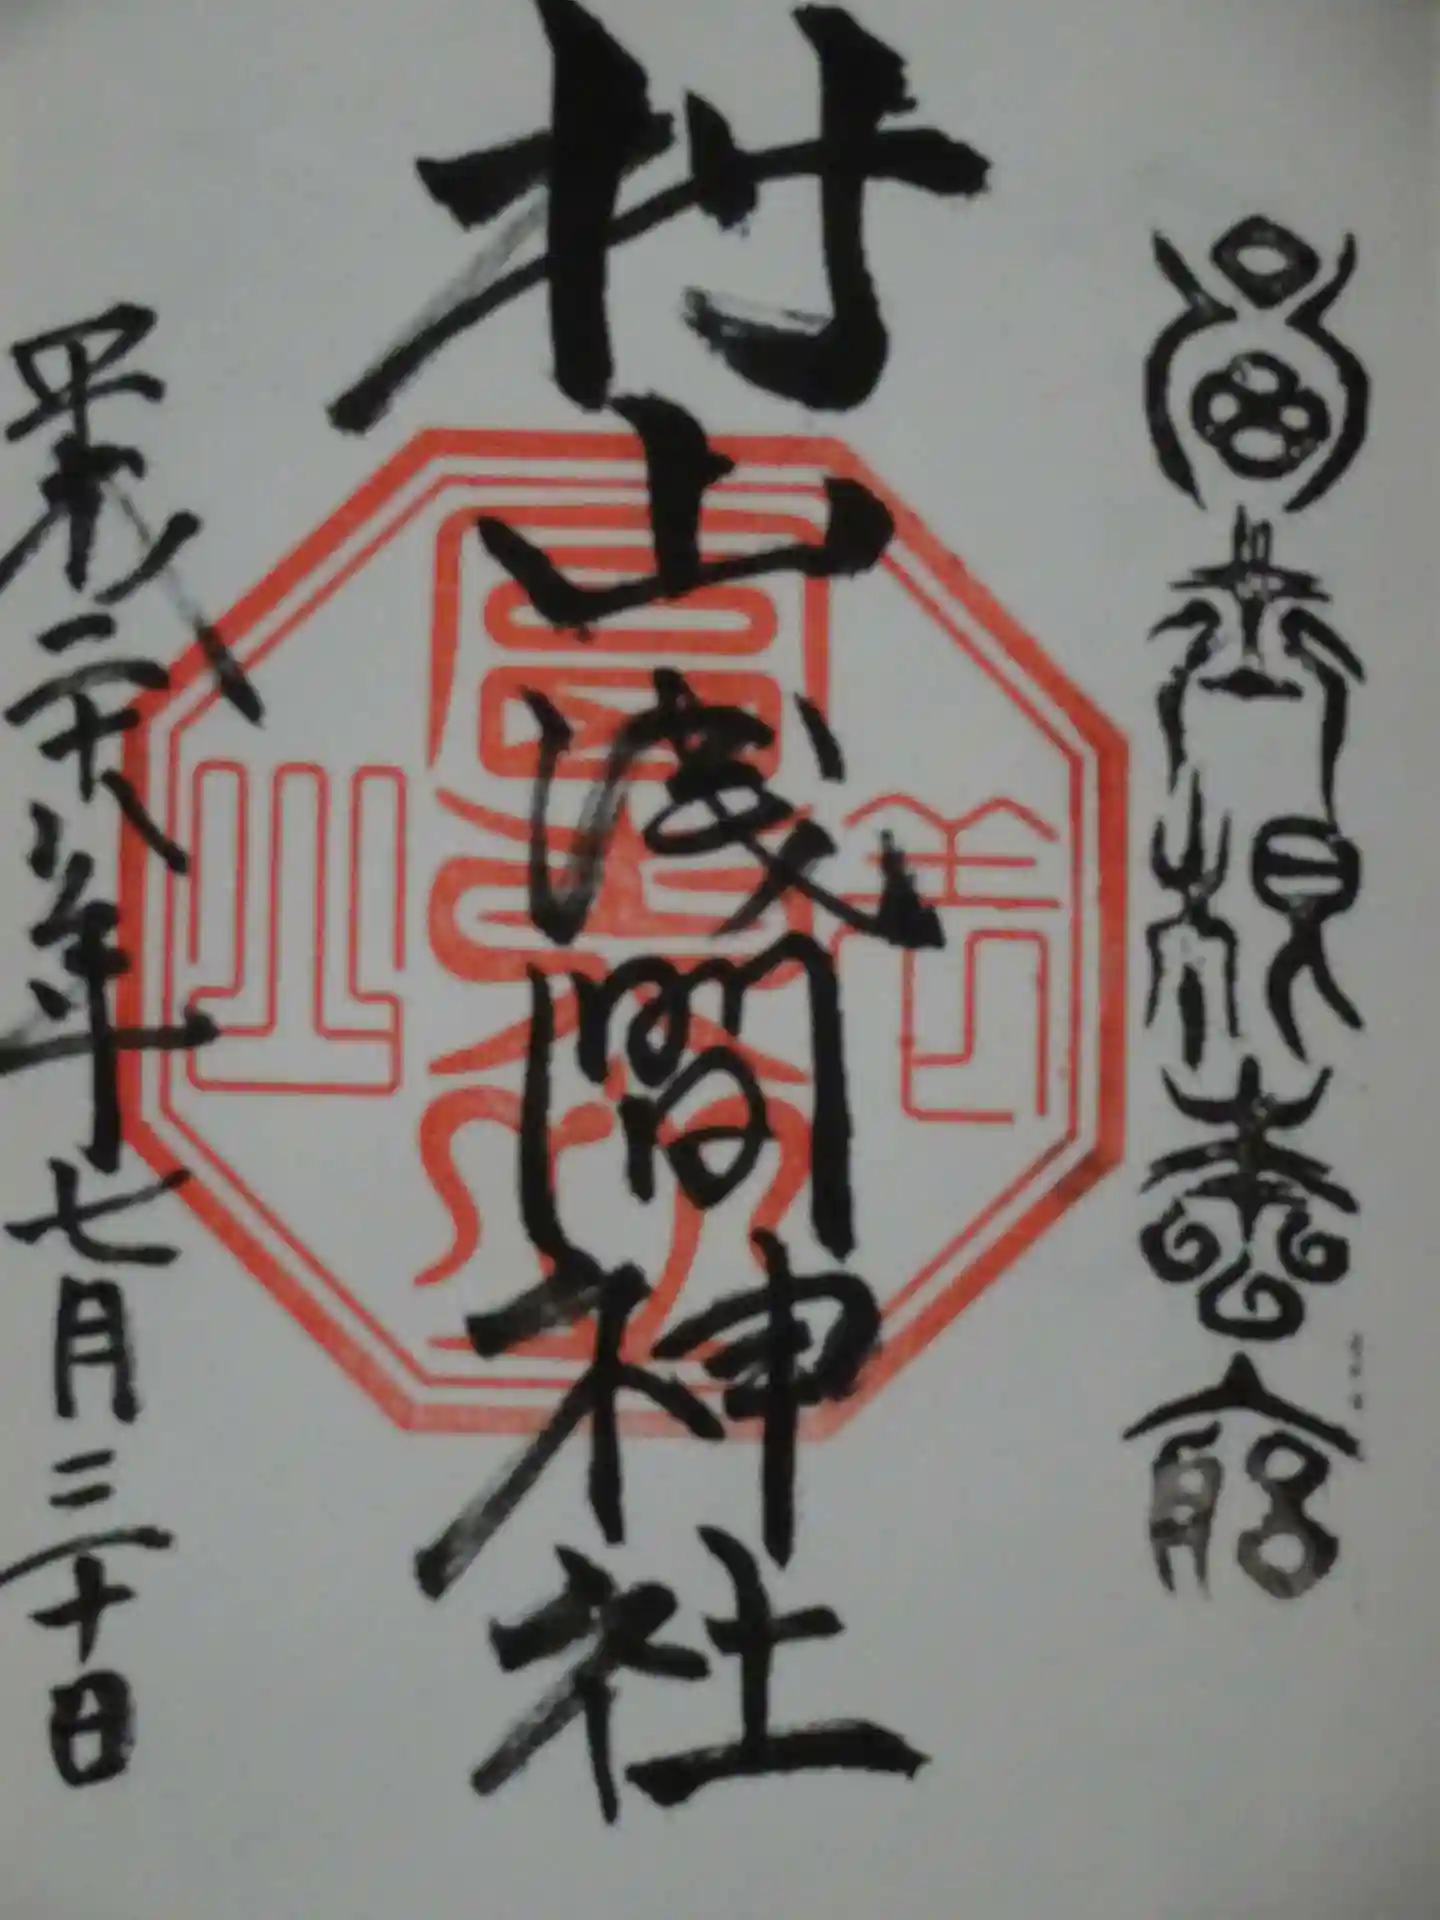 冨士根本宮
村山浅間神社
平成二十八年七月三十日